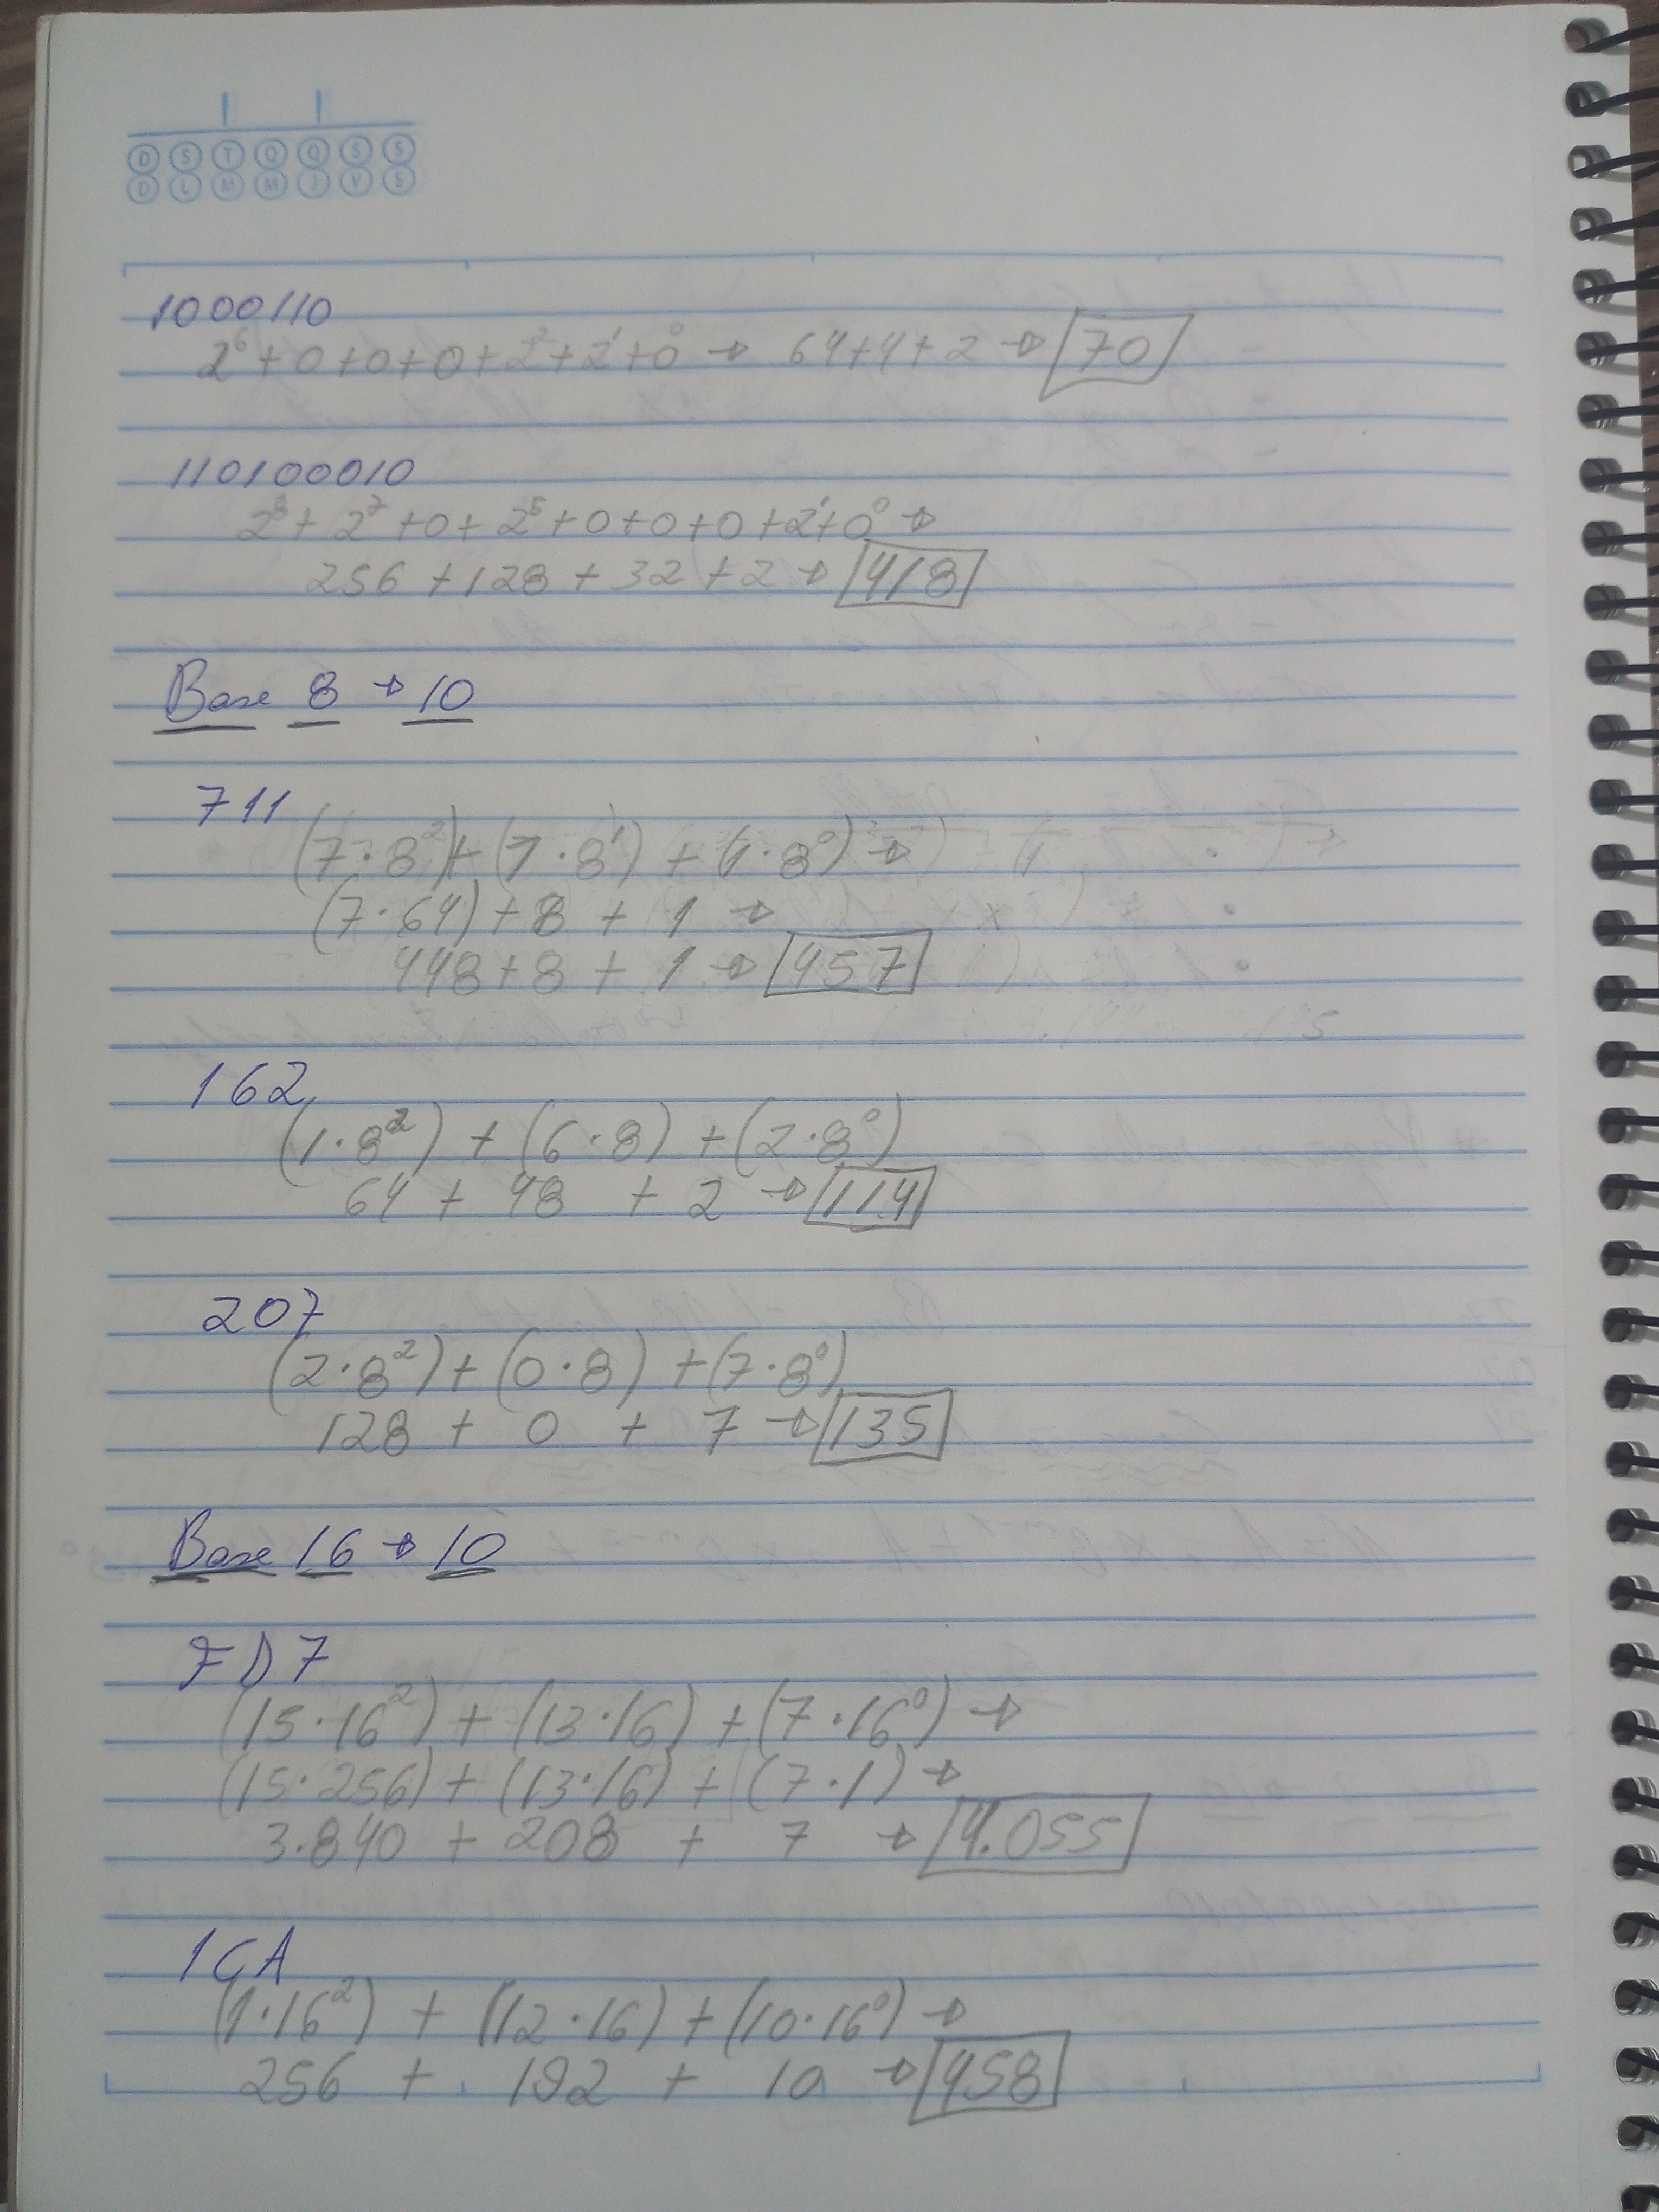 D S T Q Q S S
D L M M J V S
1000110
2⁶ + 0 + 0 + 0 + 2² + 2¹ + 0⁰ → 64 + 4 + 2 → 70
110100010
2⁸ + 2⁷ + 0 + 2⁵ + 0 + 0 + 0 + 2¹ + 0⁰ →
256 + 128 + 32 + 2 → 418
Base 8 → 10
711
(7·8²) + (1·8¹) + (1·8⁰) →
(7·64) + 8 + 1 →
448 + 8 + 1 → 457
162
(1·8²) + (6·8) + (2·8⁰)
64 + 48 + 2 → 114
207
(2·8²) + (0·8) + (7·8⁰)
128 + 0 + 7 → 135
Base 16 → 10
FD7
(15·16²) + (13·16) + (7·16⁰) →
(15·256) + (13·16) + (7·1) →
3.840 + 208 + 7 → 4.055
1CA
(1·16²) + (12·16) + (10·16⁰) →
256 + 192 + 10 → 458